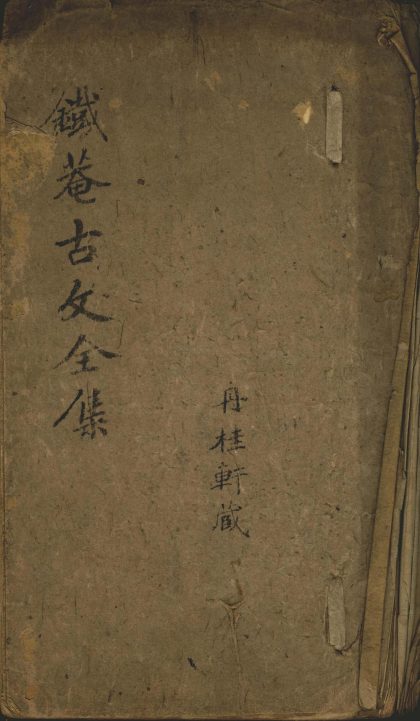 丹桂軒藏
鐵菴古文全集